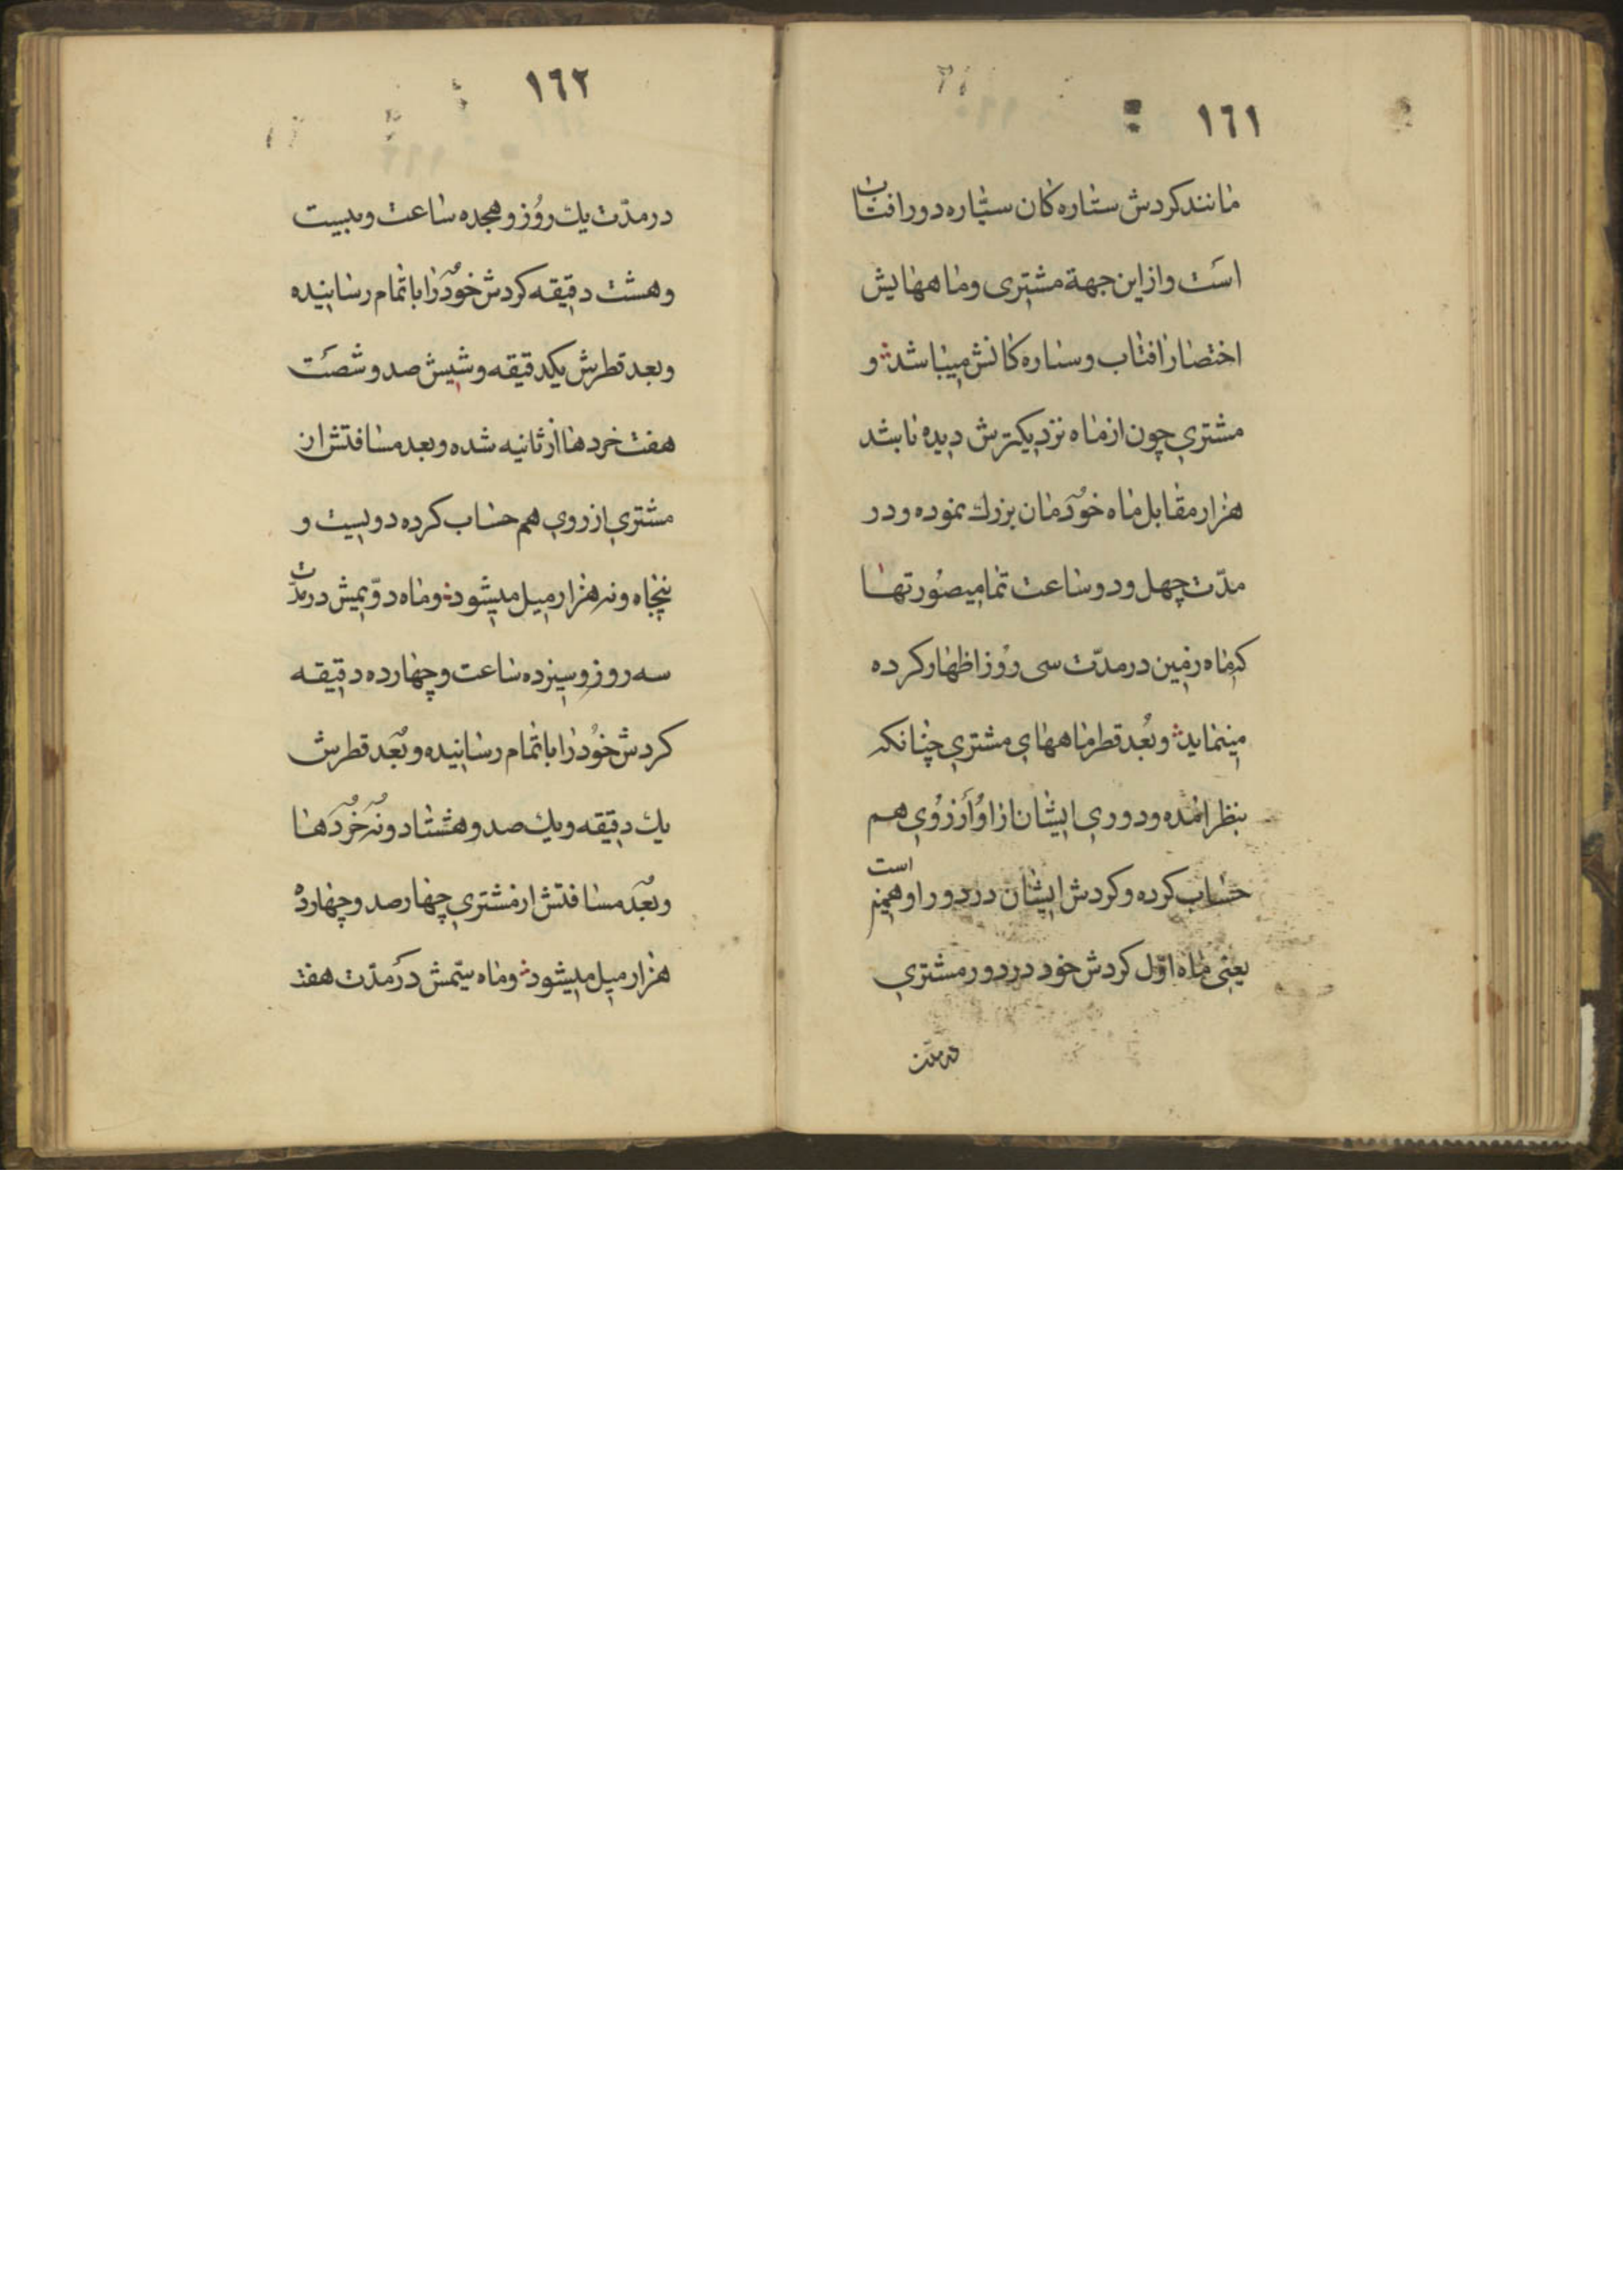 ١٦١
مانند كردش ستاره كان سيّاره دور افتاب
است و از اين جهة مشترى و ماههايش
اختصار افتاب و ستاره كانش ميباشد و
مشتري چون از ماه نزديكترش ديده باشد
هزار مقابل ماه خودمان بزرك نموده و در
مدّت چهل و دو ساعت تماميصورتها
كه ماه زمين در مدّت سى روز اظهار كرده
مينمايد و بُعد قطر ماههاي مشتري چنانكه
بنظر امده و دوري ايشان از او از رُوي هم
حساب كرده و كردش ايشان در دور او همين است
يعني ماه اوّل كردش خود در دور مشتري
در مدّت
١٦٢
در مدّت يك روُز و هجده ساعت و بيست
و هشت دقيقه كردش خود را باتمام رسانيده
و بعد قطرش يكدقيقه و شيش صد و شصت
هفت خردها از ثانيه شده و بعد مسافتش از
مشتري از روي هم حساب كرده دويست و
پنجاه و نه هزار ميل ميشود و ماه دوّيمش در مدّت
سه روز و سيزده ساعت و چهارده دقيقه
كردش خوُد را باتمام رسانيده و بُعد قطرش
يك دقيقه و يك صد و هشتاد و نه خُردها
و بُعد مسافتش از مشتري چهارصد و چهارده
هزار ميل ميشود و ماه سيّمش در مدّت هفت